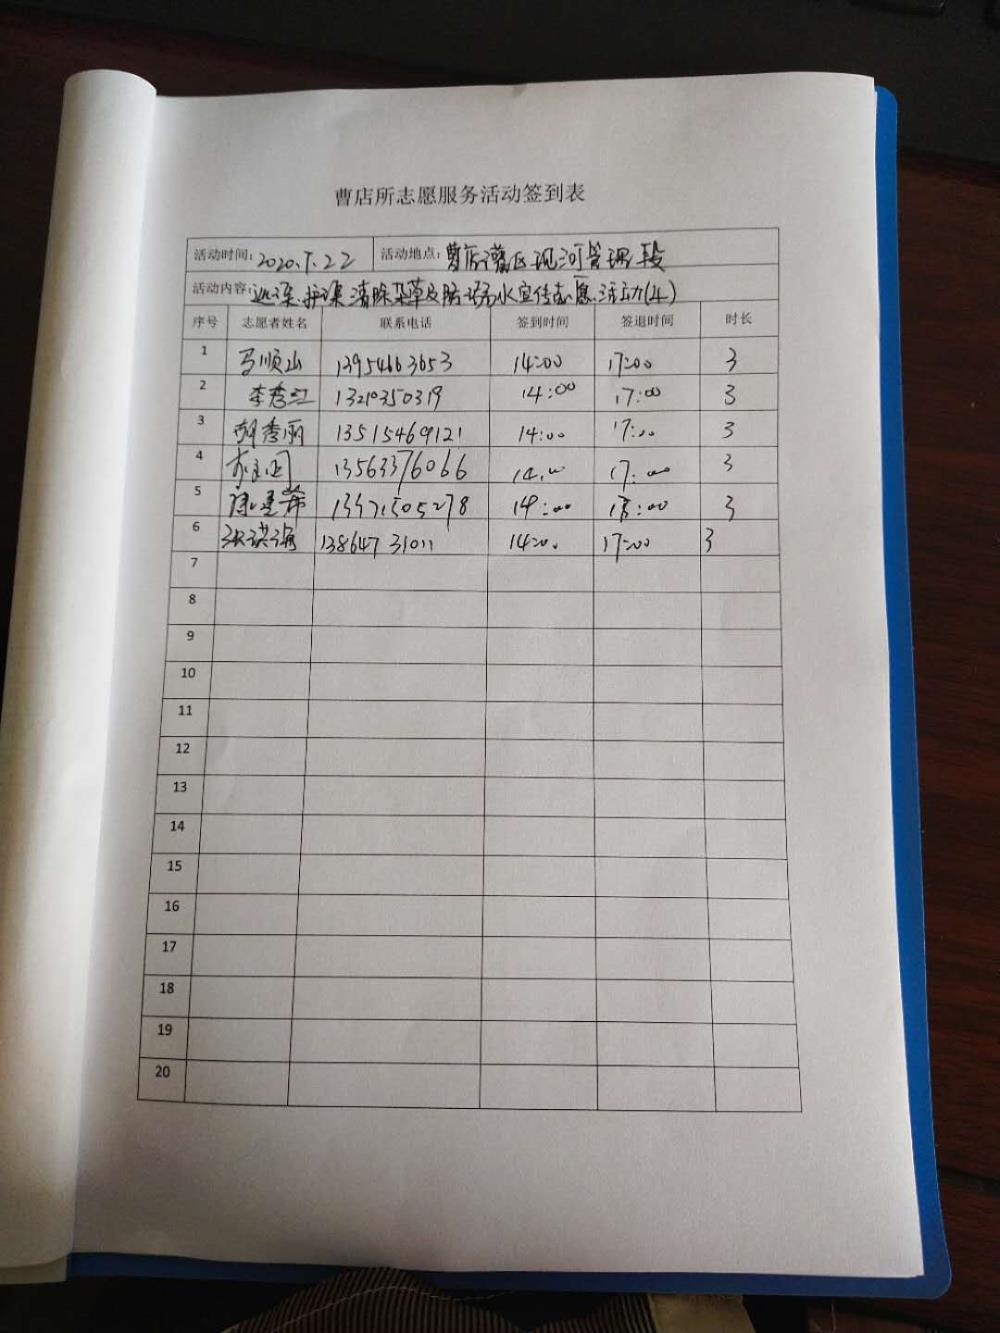 曹店所志愿服务活动签到表
活动时间: 2020.7.22 活动地点: 曹店灌区现河管理段
活动内容: 巡渠.护渠.清除杂草及防溺水宣传志愿活动(4)
序号 志愿者姓名 联系电话 签到时间 签退时间 时长
1 马顺山 13954663653 14:00 17:00 3
2 李秀江 13210350319 14:00 17:00 3
3 胡秀丽 13515469121 14:00 17:00 3
4 13563376066 14:00 17:00 3
5 14:00 3
6 13864731011 14:00 17:00 3
7
8
9
10
11
12
13
14
15
16
17
18
19
20